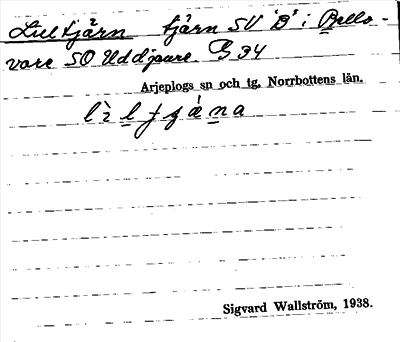 Lilltjärn tjärn SV "B" i Bello-
vare SO Uddjaure. G 34
Arjeplogs sn och tg, Norrbottens län.
Sigvard Wallström, 1938.